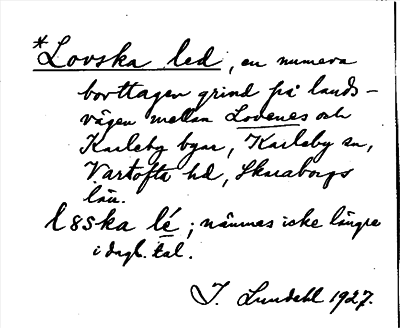 *Lovska led, en numera
borttagen grind på lands-
vägen mellan Lovenes och
Karleby byar, Karleby sn,
Vartofta hd, Skaraborgs
län.
lɜska lé; nämnes icke längre
i dagl. tal.
I. Lundahl 1927.